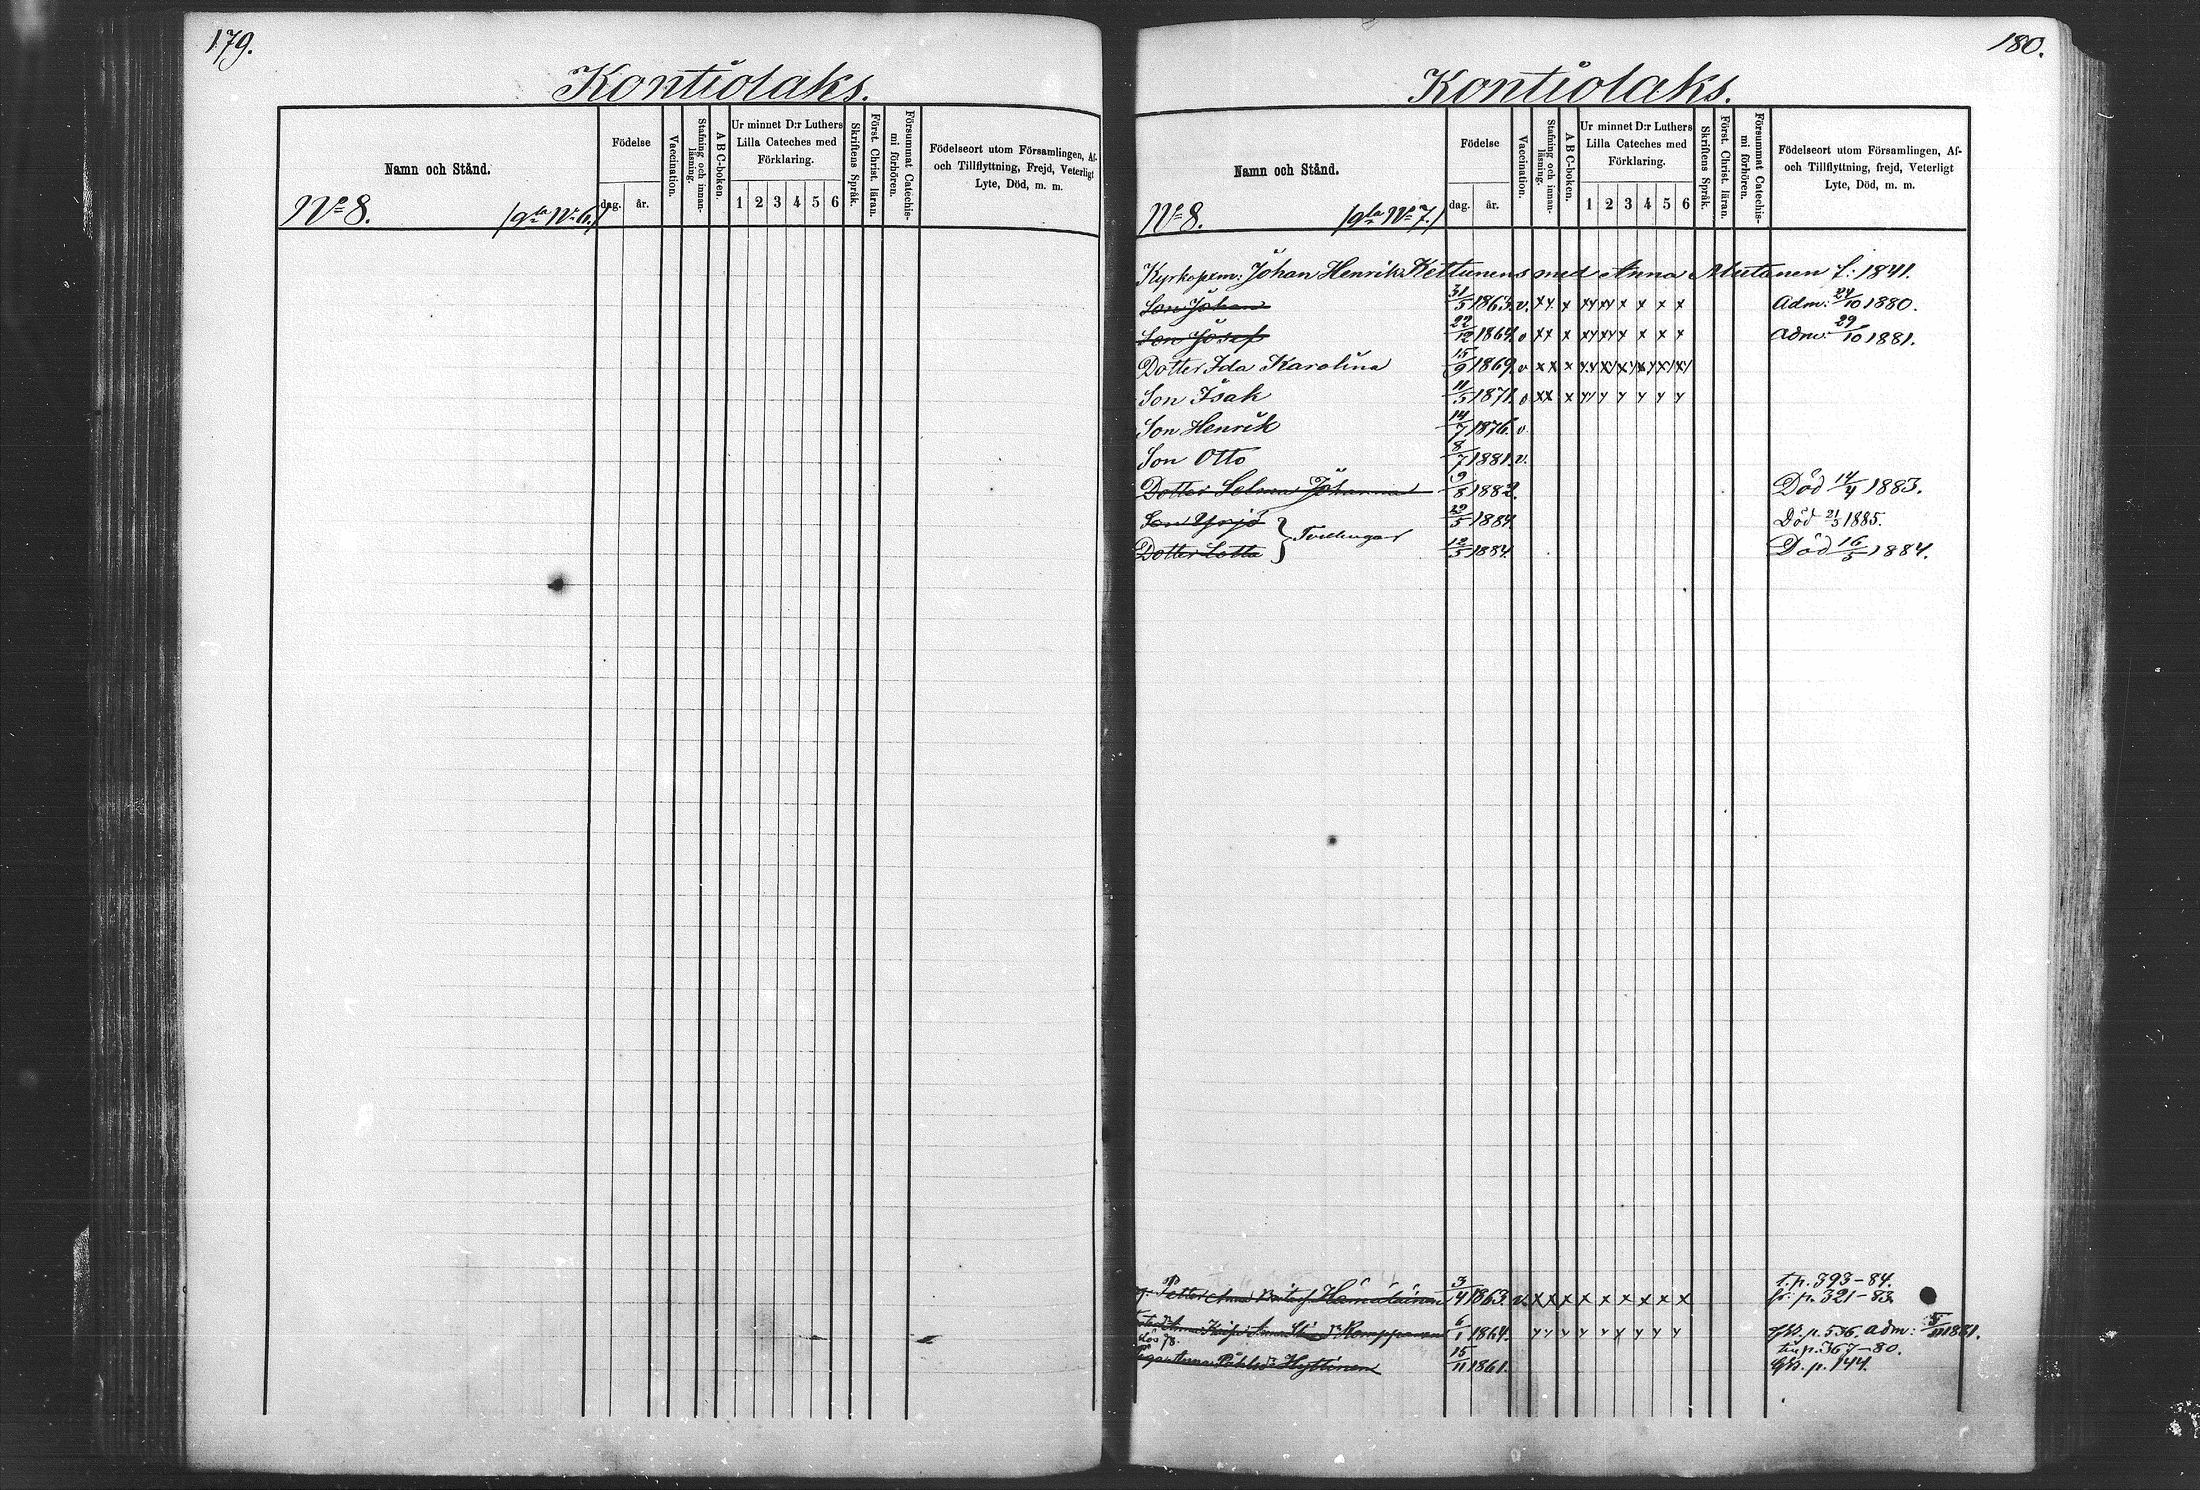 179.
Kontiolaks.
Namn och Stånd.
Födelse
dag. år.
Vaccination.
Stafning och innan-läsning.
A B C-boken.
Ur minnet D:r Luthers
Lilla Cateches med
Förklaring.
1 2 3 4 5 6
Skriftens Språk.
Först. Christ. läran.
Försummat Catechis-mi förhören.
Födelseort utom Församlingen, Af-
och Tillflyttning, Frejd, Veterligt
Lyte, Död, m. m.
No 8. /gla No 6./
180.
Kontiolaks.
Namn och Stånd.
Födelse
dag. år.
Vaccination.
Stafning och innan-läsning.
A B C-boken.
Ur minnet D:r Luthers
Lilla Cateches med
Förklaring.
1 2 3 4 5 6
Skriftens Språk.
Först. Christ. läran.
Försummat Catechis-mi förhören.
Födelseort utom Församlingen, Af-
och Tillflyttning, frejd, Veterligt
Lyte, Död, m. m.
No 8. /gla No 7./
Johan Henrik Kettunens med Anna Mutanen f: 1841.
Son Johan 31/5 1863. v. xy x xy xy x x x x Adm: 24/10 1880.
Son Josef 22/12 1864. v xx x xy xy x x x x Adm: 29/10 1881.
Dotter Ida Karolina 15/9 1869. v xx x
Son Isak 11/5 1871. v xx x yy y y y y y
Son Henrik 14/7 1876. v.
Son Otto 8/7 1881. v.
Dotter Selma Johanna 9/8 1882. Död 14/4 1883.
Son Yrjö } Tvillingar 12/5 1884. Död 21/5 1885.
Dotter Lotta 12/5 1884. Död 16/5 1884.
Petter Hämäläinen 3/4 1863. v. xx x x x x x x x t.p. 393-84.
p. 321-83.
Anna Romppanen 6/1 1864. yy y y y y y y y p. 536. Adm: 1881.
p. 367-80.
Anna Påhlsdr Hyttinen 15/11 1861. p. 144.